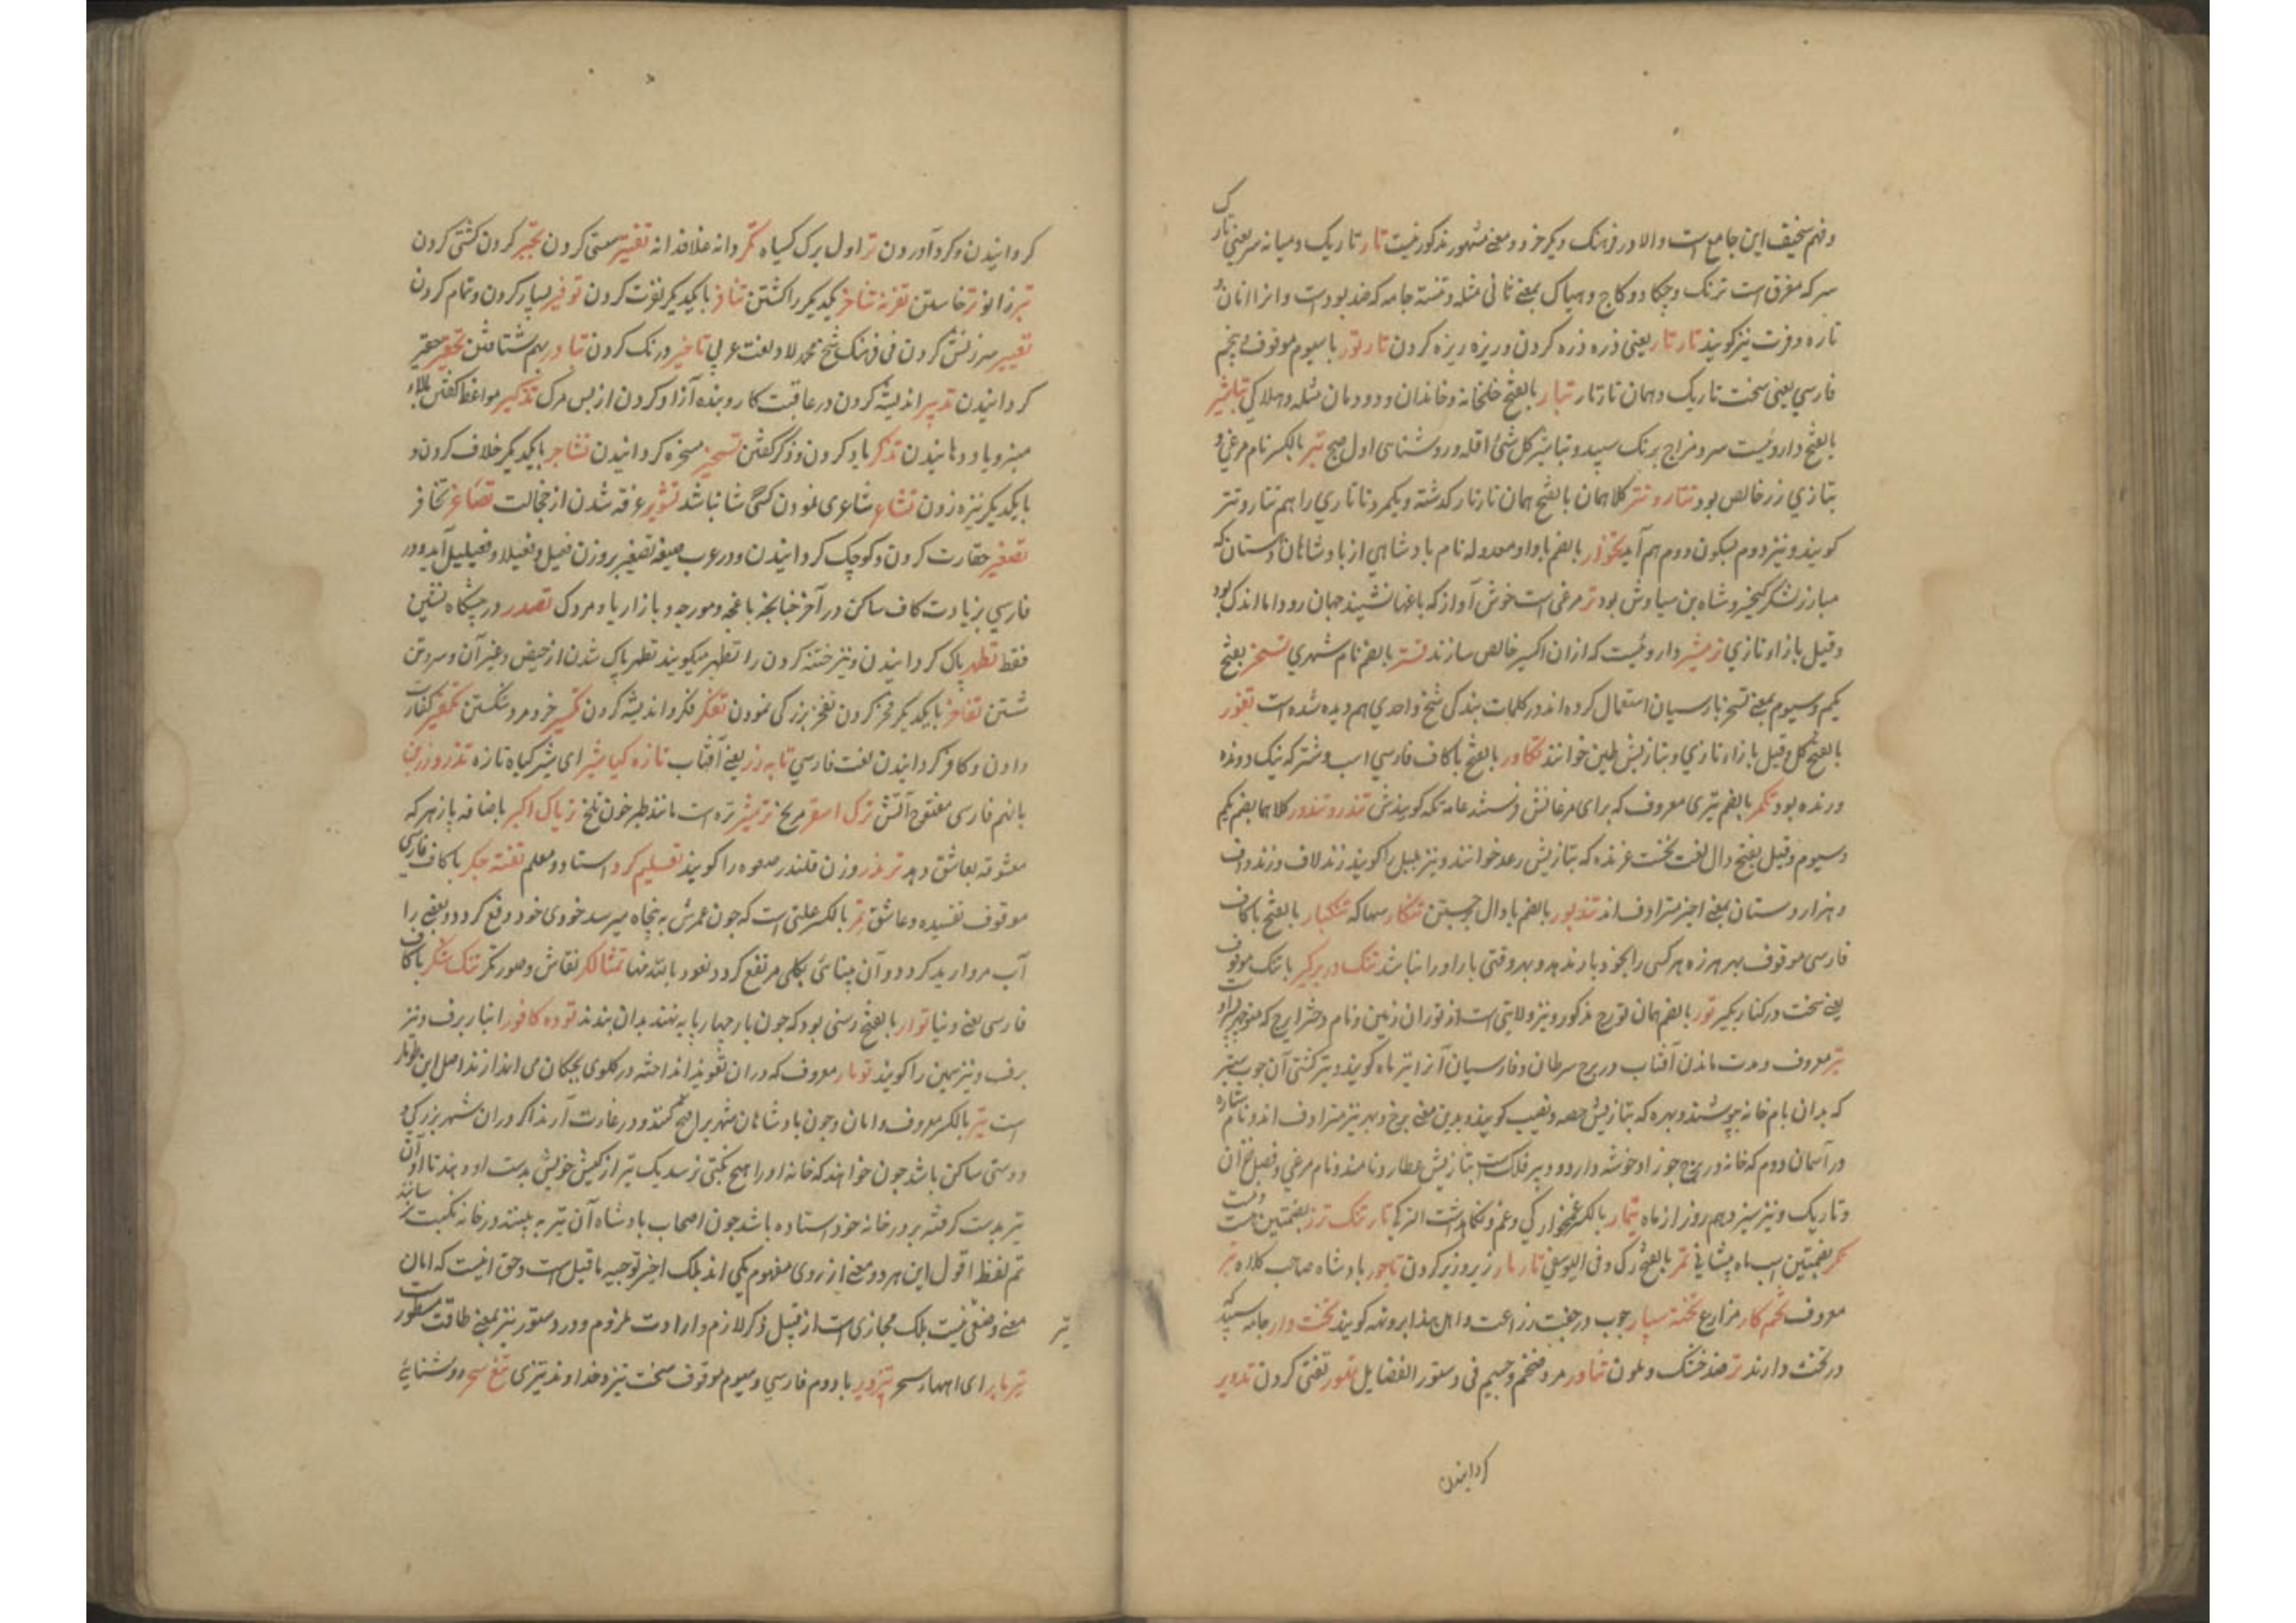 وفهم سخیف این جامع است والا در فرهنک دیکر خرد ومعنی مشهور مذکور نیست تار تاریک ومیانه سر یعنی تارک
سر که مفرق است ترنک وچکاد وکاج وهباک بمعنی ثانی مثله وتنسته جامه که ضد پود است وانرا انان
تاره وفرت نیز کویند تار تار یعنی ذره ذره کردن وریزه ریزه کردن تار تور با سیوم موقوف پنجم
فارسی یعنی سخت تاریک وهمان تار تار تبار بالفتح خلخانه وخاندان ودودمان مثله وهلاکی تباشیر
بالفتح داروئیست سرد مزاج برنک سپید وتباشیر کل شئ اقله وروشناسی اول صبح تبر بالکسر نام مرغی و
بتازی زر خالص بود تتار وتتر کلاهمان بالفتح همان تارتار کذشته ویکمرد تاتاری را هم تتار وتتر
کویند ونیز دوم بسکون دوم هم آید تخوار بالضم با واو معدوله نام بادشاهی از بادشاهان دهستان که
مبارز لشکر کیخسرو شاه بن سیاوش بود تر مرغی است خوش آواز که باغها نشیند جهان رود اما اندک بود
وقیل بازاء تازی ترمشیر داروئیست که ازان اکسیر خالص سازند تستر بالضم نام شهری تسخر بفتح
یکم وسیوم بمعنی تسخر پارسیان استعمال کرده اند در کلمات بندکی شیخ واحدی هم دیده شده است تغور
بالفتح کل وقیل بازاء تازی وبتازیش طین خوانند تکاور بالفتح با کاف فارسی اسپ وشتر که نیک دونده
ورنده بود تکمر بالضم تیری معروف که برای مرغانش فرستند عامه تکه کویندش تندر وتندور کلاهما بضم یکم
وسیوم وقیل بفتح دال لغت نخست غرنده که بتازیش رعد خوانند ونیز بلبل را کویند زند لاف وزند واف
وهزار دستان بمعنی اخیر مترادف اند تندپور بالضم با دال جستن تنکار سهاکه تنکبار بالفتح باکاف
فارسی موقوف بهر هرزه هر کسی را بخود بار ندهد وبهر وقتی بار او را نباشد تنک در برکیر با تنک موقوف
یعنی سخت در کنار بکیر تور بالضم همان تورج مذکور ونیز ولایتی است از توران زمین ونام دختر ایرج که منوچهر
تیر معروف ومدت ماندن آفتاب در برج سرطان وفارسیان آنرا تیر ماه کویند وتیر کشتی آن چوب سبتر
که بدان بام خانه بپوشند وبهره که بتازیش حصه ونصیب کویند وبدین معنی برخ وبهر نیز مترادف اند ونام ستاره
در آسمان دوم که خانه در برج جوزا وخوشه دارد ودبیر فلک است بتازیش عطارد نامند ونام مرغی وفصل خزان
وتاریک ونیز سیزدهم روز از ماه تیمار بالکسر غمخوارکی وغم ونکاهداشت
تمر بالفتح رکی وفی الیوسفی تار مار زیر وزبر کردن تاجور بادشاه صاحب کلاه تبر
معروف تخم کار مزارع تخته سپار چوب درجفت زراعت تخت دار جامه سپید که
در تخت دارند تر ضد خشک وملون تناور مرد ضخم وجسیم فی دستور الفضایل تدویر
کردانیدن
کردانیدن وکرد آوردن تر اول برک کیاه تکر دانه غلافدانه تفسیر معنی کردن تجبر کردن کشی کردن
تاخر یکدیکر را کشتن تنافر با یکدیکر نفرت کردن توفیر بسیار کردن وتمام کردن
تعییر سرزنش کردن فی فرهنک شیخ محمد لاد ولغت عربی تاخیر درنک کردن تبادر بهم شتافتن تحقیر حقیر
کردانیدن تدبیر اندیشه کردن در عاقبت کار وبنده آزاد کردن از پس مرک تذکیر مواعظ کفتن
ویاد دهانیدن تذکر یاد کردن وذکر کفتن تسخیر مسخره کردانیدن تشاجر با یکدیکر خلاف کردن و
با یکدیکر نیزه زدن تشاعر شاعری نمودن کسی شاعر نباشد تشویر غرقه شدن از خجالت تصاغر تحاقر
تصغیر حقارت کردن وکوچک کردانیدن ودر عرب صیغه تصغیر بروزن فعیل وفعیلا وفعیلیل آید ودر
فارسی بزیادت کاف ساکن در آخر چنانچه باغچه ومورچه وبازاریا ومردک تصدر در پیشکاه نشین
فقط تطهیر پاک کردانیدن ونیز ختنه کردن را تطهیر میکویند تطهر پاک شدن از حیض وغیر آن وسر وتن
شستن تفاخر با یکدیکر فخر کردن تفخر بزرکی نمودن تفکر فکر واندیشه کردن تکسیر خرد مرد شکستن تکفیر کفارت
دادن وکافر کردانیدن لغت فارسی تابه زر یعنی آفتاب تازه کیا شیر ای شیر کیاه تازه تذرو زرین
با نهم فارسی مفتوح آتش ترک اسقر مریخ ترمشیر تره است مانند طبرخون تلخ تریاک اکبر باضافه پازهر که
معشوقه بعاشق دهد ترمذر وزن قلندر صعوه را کویند تعلیم کرد استاد ومعلم تفته جکر با کاف فارسی
موقوف تفسیده وعاشق تمر بالکسر علتی است که چون عمرش به پنجاه میرسد خودی خود وقع کردد وبعضی را
آب مروارید کردد وآن بینائی بکلی مرتفع کردد نعوذ بالله منها تمثالکر نقاش وصورتکر تنک شکر با کاف
فارسی یعنی دنیا توار بالفتح رسنی بود که چون بار چهارپایه نهند بدان بندند توده کافور انبار برف ونیز
برف ونیز زمین را کویند تومار معروف که دران تعویذ انداخته در کلوی بچکان می اندازند اصل این طومار
است تیر بالکسر معروف وامان وچون بادشاهان شهر برا فتح کنند ودر غارت آرند اکر دران شهر بزرکی و
دوستی ساکن باشد چون خواهند که خانه اورا هیچ نکبتی نرسد یک تیر از کیش خویش بدست او دهند تا او آن
تیر بدست کرفته بر در خانه خود ستاده باشد چون اصحاب بادشاه آن تیر به بینند در خانه نکبت نرسانند
تم لفظ اقول این هر دو معنی از روی مفهوم یکی اند بلک اخیر توجیه ماقبل است وحق انیست که امان
معنی وضعی نیست بلک مجازی است از قبیل ذکر لازم وارادت ملزوم ودر دستور نیز بمعنی طاقت مسطور است
تیر باران سحر با دوم فارسی وسیوم موقوف سخت تیز وخداوند تیزی تیغ سحر روشنایی
تیر